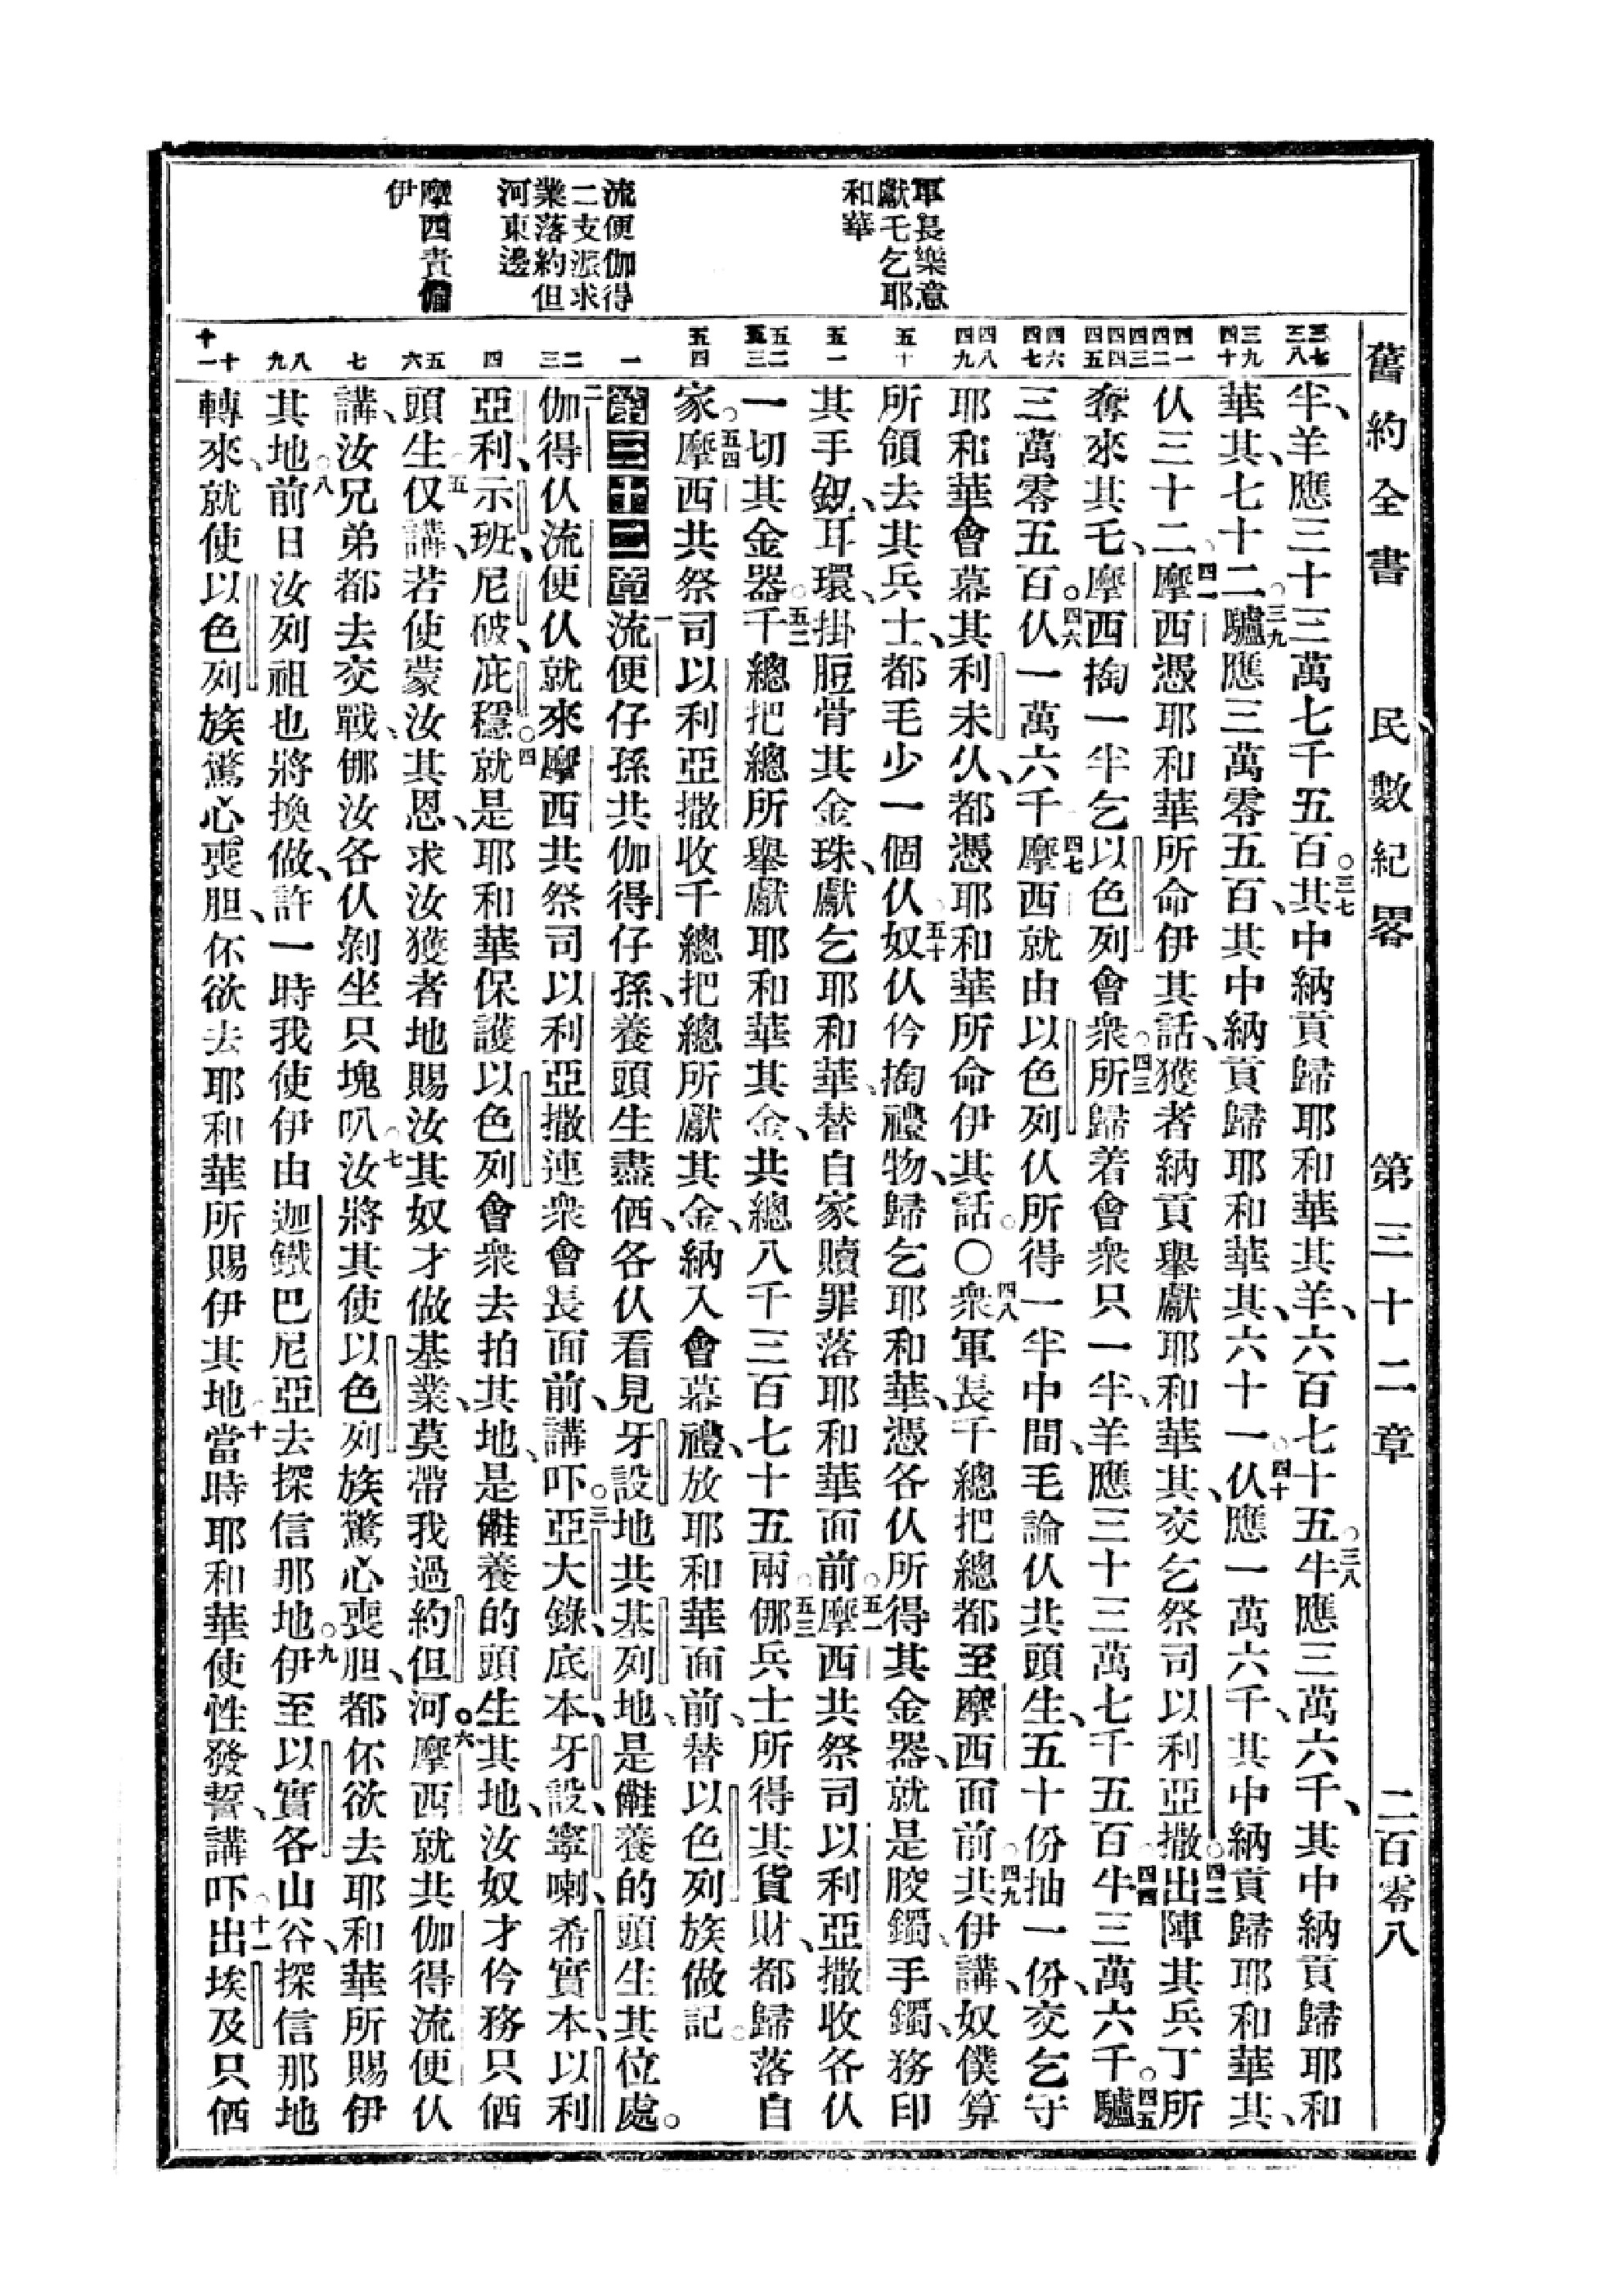 舊約全書 民數紀畧 第三十二章 二百零八
軍長樂意
獻乇乞耶
和華
流便伽得
二支派求
業落約但
河東邊
摩西責備
伊
三七 三八
三九 四十
四一 四二 四三
四四 四五
四六 四七
四八 四九
五十
五一
五二 五三
五四
一
二 三
四
五 六
七
八 九
十 十一
半、羊應三十三萬七千五百。三七其中納貢歸耶和華其羊、六百七十五。三八牛應三萬六千、其中納貢歸耶和
華其、七十二。三九驢應三萬零五百、其中納貢歸耶和華其、六十一。四十仈應一萬六千、其中納貢歸耶和華其、
仈三十二、四一摩西憑耶和華所命伊其話、獲者納貢舉獻耶和華其、交乞祭司以利亞撒。四二出陣其兵丁所
奪來其乇、摩西掏一半乞以色列會衆。四三所歸着會衆只一半、羊應三十三萬七千五百。四四牛三萬六千。四五驢
三萬零五百。四六仈一萬六千。四七摩西就由以色列仈所得一半中間、乇論仈共頭生、五十份抽一份、交乞守
耶和華會幕其利未仈、都憑耶和華所命伊其話。〇四八衆軍長千總把總都至摩西面前。四九共伊講、奴僕算
所領去其兵士、都乇少一個仈。五十奴仈伱掏禮物、歸乞耶和華、憑各仈所得其金器、就是胶鐲、手鐲、務印
其手釼、耳環、掛脰骨其金珠、獻乞耶和華、替自家贖罪落耶和華面前。五一摩西共祭司以利亞撒收各仈
一切其金器。五二千總把總所舉獻耶和華其金、共總八千三百七十五兩。五三倻兵士所得其貨財、都歸落自
家。五四摩西共祭司以利亞撒收千總、把總所獻其金、納入會幕禮、放耶和華面前、替以色列族做記。
第三十二章一流便仔孫共伽得仔孫、養頭生盡価、各仈看見牙設地共基列地、是𠆧養的頭生其位處。
二伽得仈流便仈就來摩西共祭司以利亞撒連衆會長面前、講吓。三亞大錄、底本、牙設、寧喇、希實本、以利
亞利、示班、尼破、庇穩。四就是耶和華保護以色列會衆去拍其地、是𠆧養的頭生其地、汝奴才伱務只価
頭生。五仅講、若使蒙汝其恩、求汝獲者地賜汝其奴才做基業、莫帶我過約但河。六摩西就共伽得流便仈
講、汝兄弟都去交戰、倻汝各仈剝坐只塊叭。七汝將其使以色列族驚心喪胆、都伓欲去耶和華所賜伊
其地。八前日汝列祖也將換做、許一時我使伊由迦鐵巴尼亞去探信那地。九伊至以實各山谷、探信那地
轉來、就使以色列族驚心喪胆、伓欲去耶和華所賜伊其地。十當時耶和華使性發誓、講吓。十一出埃及只価